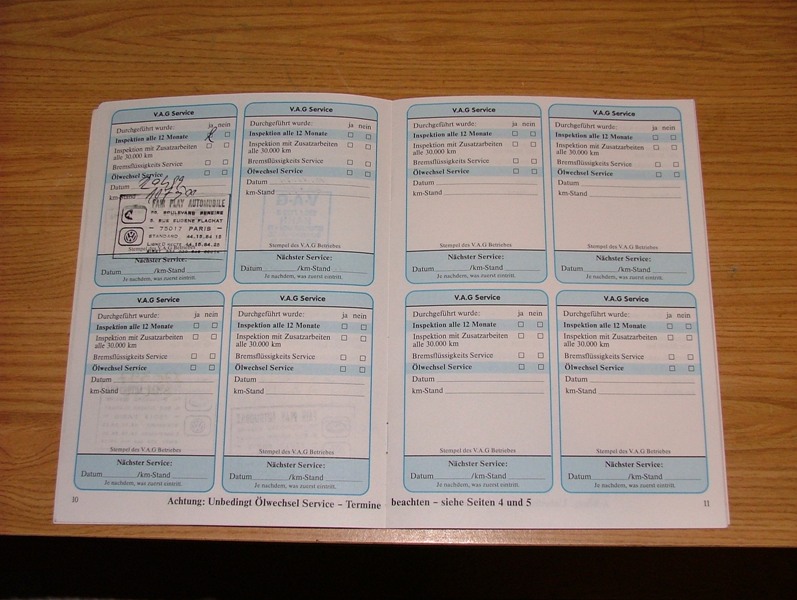 V.A.G Service
Durchgeführt wurde: ja nein
Inspektion alle 12 Monate
Inspektion mit Zusatzarbeiten
alle 30.000 km
Bremsflüssigkeits Service
Ölwechsel Service
Datum
km-Stand
FAIR PLAY AUTOMOBILE
BOULEVARD PEREIRE
5, RUE EUGENE FLACHAT
- 75017 PARIS -
STANDARD 44.15.84.15
Stempel des V.A.G Betriebes
Nächster Service:
Datum /km-Stand
Je nachdem, was zuerst eintritt.
V.A.G Service
Durchgeführt wurde: ja nein
Inspektion alle 12 Monate
Inspektion mit Zusatzarbeiten
alle 30.000 km
Bremsflüssigkeits Service
Ölwechsel Service
Datum
km-Stand
Stempel des V.A.G Betriebes
Nächster Service:
Datum /km-Stand
Je nachdem, was zuerst eintritt.
V.A.G Service
Durchgeführt wurde: ja nein
Inspektion alle 12 Monate
Inspektion mit Zusatzarbeiten
alle 30.000 km
Bremsflüssigkeits Service
Ölwechsel Service
Datum
km-Stand
Stempel des V.A.G Betriebes
Nächster Service:
Datum /km-Stand
Je nachdem, was zuerst eintritt.
V.A.G Service
Durchgeführt wurde: ja nein
Inspektion alle 12 Monate
Inspektion mit Zusatzarbeiten
alle 30.000 km
Bremsflüssigkeits Service
Ölwechsel Service
Datum
km-Stand
Stempel des V.A.G Betriebes
Nächster Service:
Datum /km-Stand
Je nachdem, was zuerst eintritt.
10
Achtung: Unbedingt Ölwechsel Service – Termine
V.A.G Service
Durchgeführt wurde: ja nein
Inspektion alle 12 Monate
Inspektion mit Zusatzarbeiten
alle 30.000 km
Bremsflüssigkeits Service
Ölwechsel Service
Datum
km-Stand
Stempel des V.A.G Betriebes
Nächster Service:
Datum /km-Stand
Je nachdem, was zuerst eintritt.
V.A.G Service
Durchgeführt wurde: ja nein
Inspektion alle 12 Monate
Inspektion mit Zusatzarbeiten
alle 30.000 km
Bremsflüssigkeits Service
Ölwechsel Service
Datum
km-Stand
Stempel des V.A.G Betriebes
Nächster Service:
Datum /km-Stand
Je nachdem, was zuerst eintritt.
V.A.G Service
Durchgeführt wurde: ja nein
Inspektion alle 12 Monate
Inspektion mit Zusatzarbeiten
alle 30.000 km
Bremsflüssigkeits Service
Ölwechsel Service
Datum
km-Stand
Stempel des V.A.G Betriebes
Nächster Service:
Datum /km-Stand
Je nachdem, was zuerst eintritt.
V.A.G Service
Durchgeführt wurde: ja nein
Inspektion alle 12 Monate
Inspektion mit Zusatzarbeiten
alle 30.000 km
Bremsflüssigkeits Service
Ölwechsel Service
Datum
km-Stand
Stempel des V.A.G Betriebes
Nächster Service:
Datum /km-Stand
Je nachdem, was zuerst eintritt.
beachten – siehe Seiten 4 und 5
11